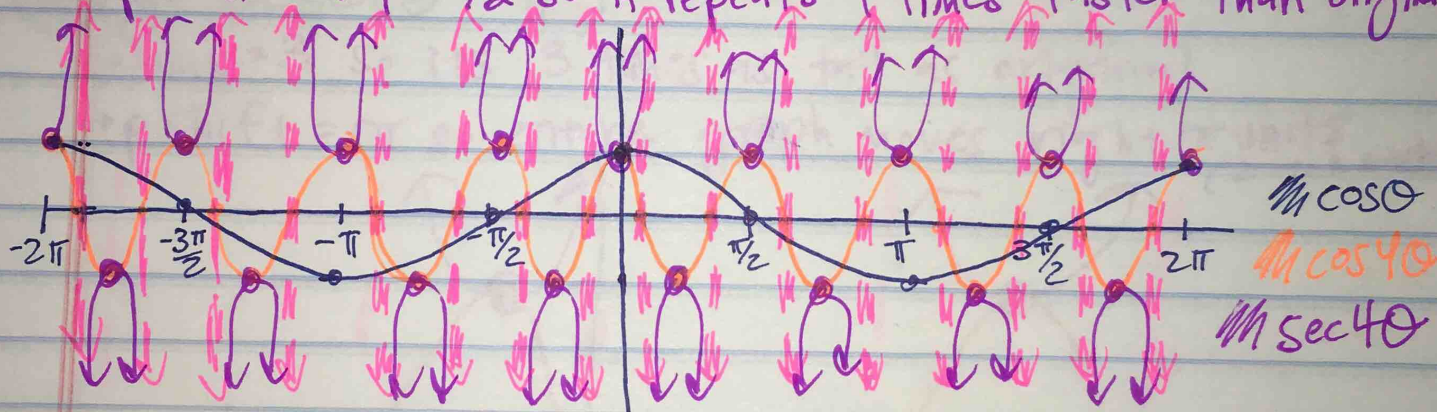 repeats 4 times faster than
-2π -3π/2 -π -π/2 π/2 π 3π/2 2π
cosθ
cos4θ
sec4θ